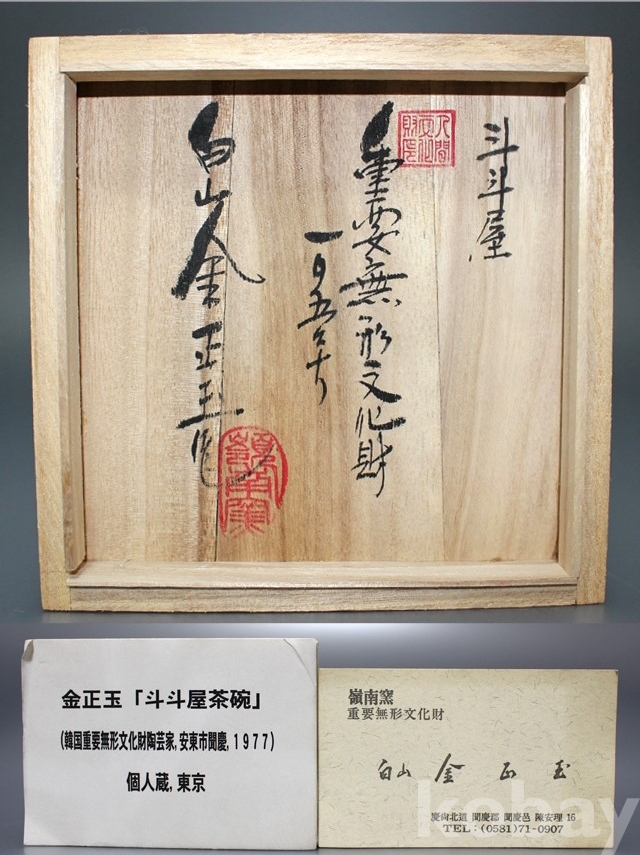 斗斗屋
人間文化財印
重要無形文化財
一〇五号
白山金正玉作
嶺南窯
金正玉「斗斗屋茶碗」
(韓国重要無形文化財陶芸家,安東市聞慶,1977)
個人蔵,東京
嶺南窯
重要無形文化財
白山 金 正 玉
慶尙北道 聞慶郡 聞慶邑 陳安理 16
TEL:(0581)71-0907
kobay